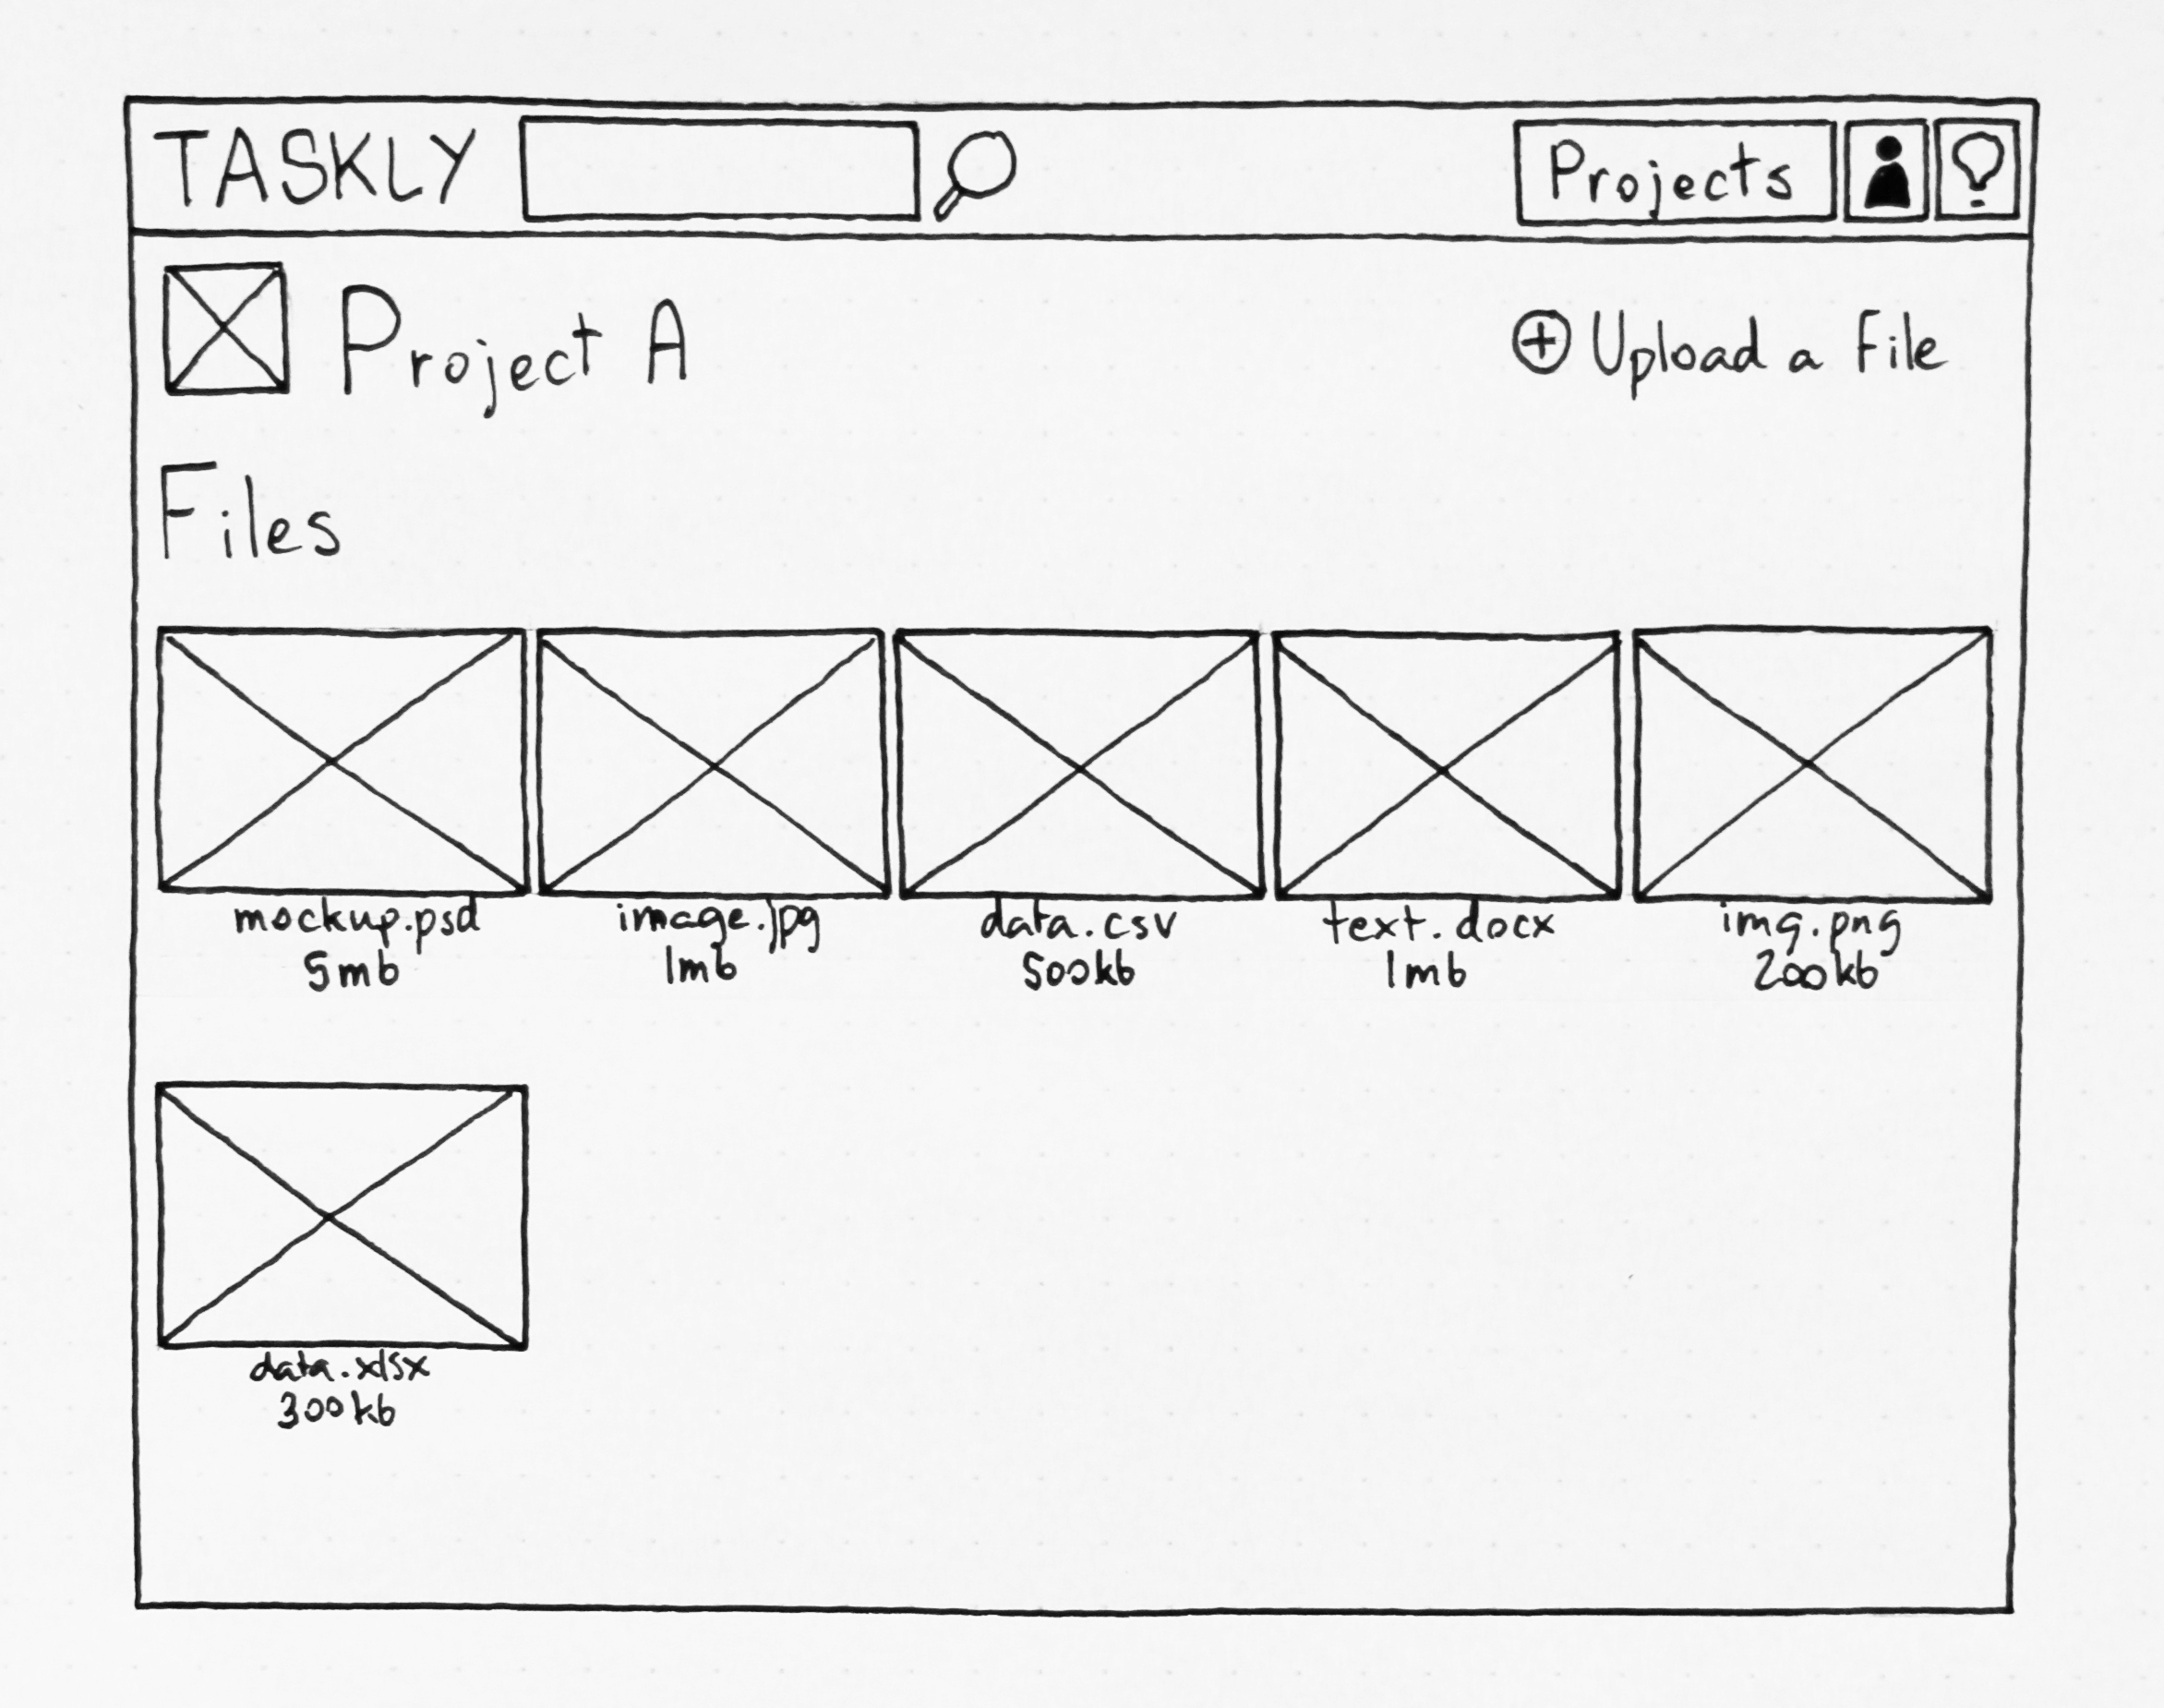 TASKLY
Projects
Project A
Upload a File
Files
mockup.psd
5mb
image.jpg
1mb
data.csv
500kb
text.docx
1mb
img.png
200kb
data.xlsx
300kb